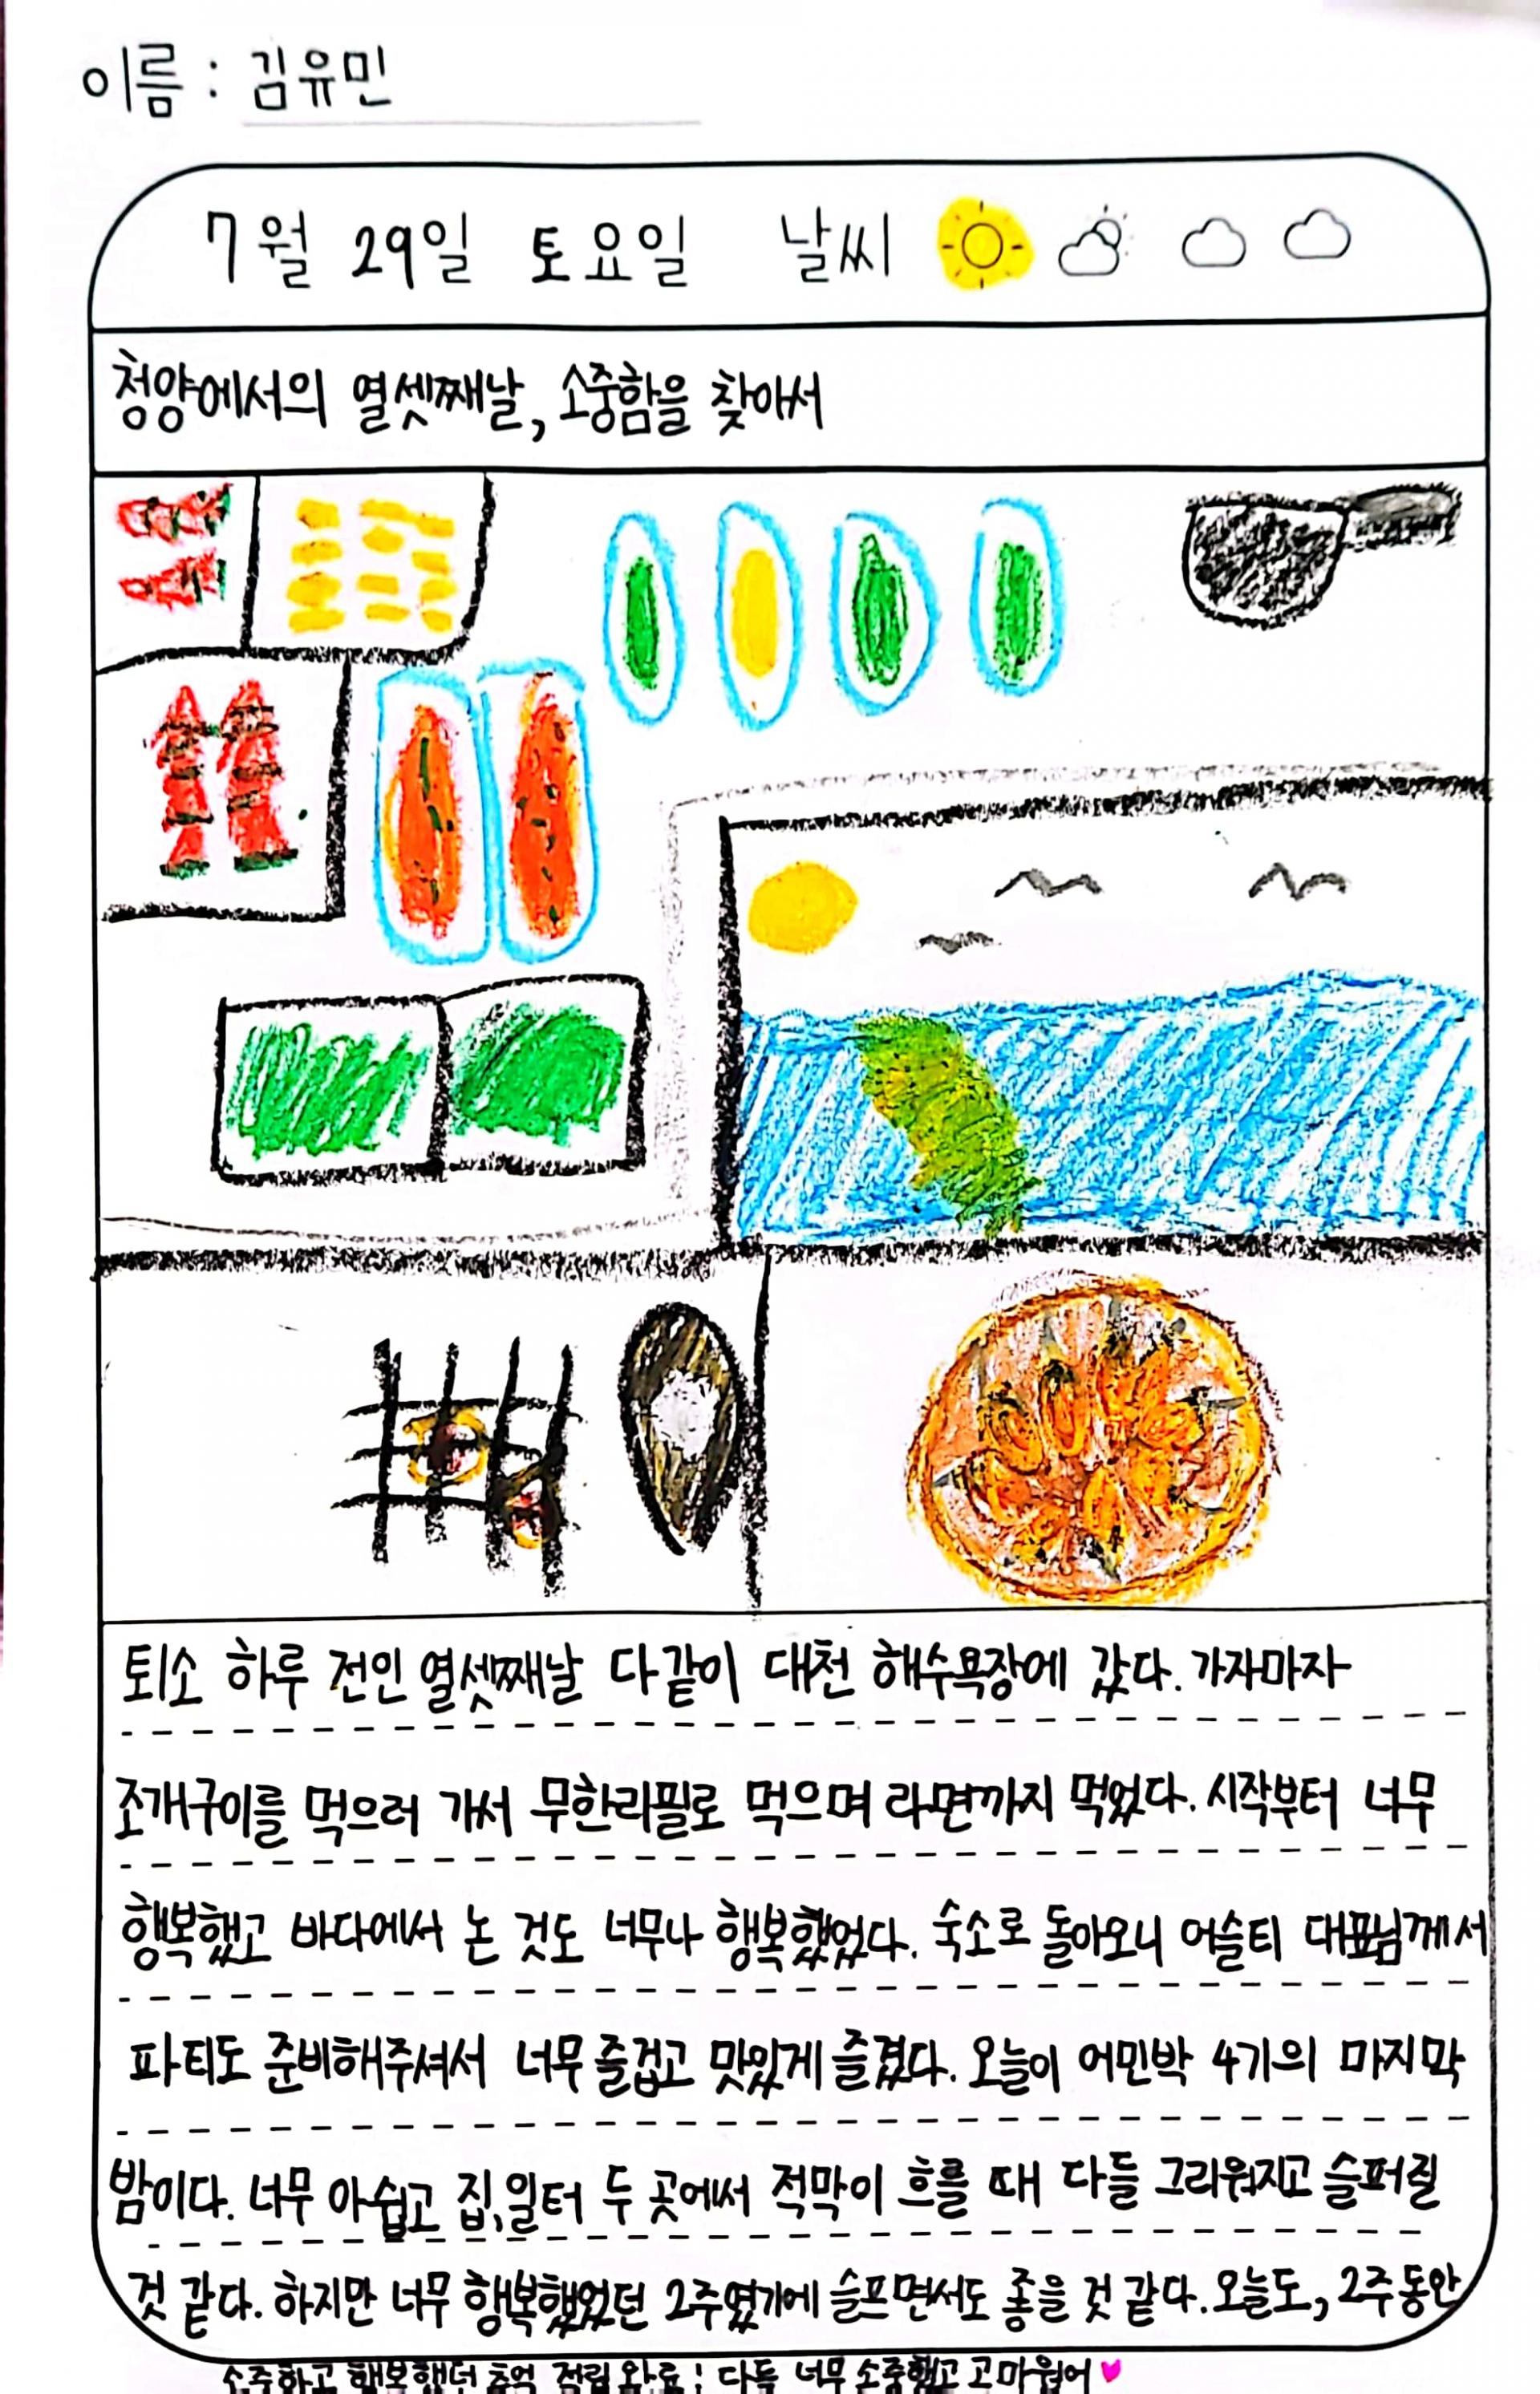 이름 : 김유민
7월 29일 토요일 날씨
청양에서의 열셋째날, 소중함을 찾아서
퇴소 하루 전인 열셋째날 다같이 대천 해수욕장에 갔다. 가자마자
조개구이를 먹으러 가서 무한리필로 먹으며 라면까지 먹었다. 시작부터 너무
행복했고 바다에서 논 것도 너무나 행복했었다. 숙소로 돌아오니 어슬티 대표님께서
파티도 준비해주셔서 너무 즐겁고 맛있게 즐겼다. 오늘이 어민박 4기의 마지막
밤이다. 너무 아쉽고 집, 일터 두 곳에서 적막이 흐를 때 다들 그리워지고 슬퍼질
것 같다. 하지만 너무 행복했었던 2주였기에 슬프면서도 좋을 것 같다. 오늘도, 2주동안
소중하고 행복했던 추억 적립 완료! 다들 너무 소중했고 고마웠어♥